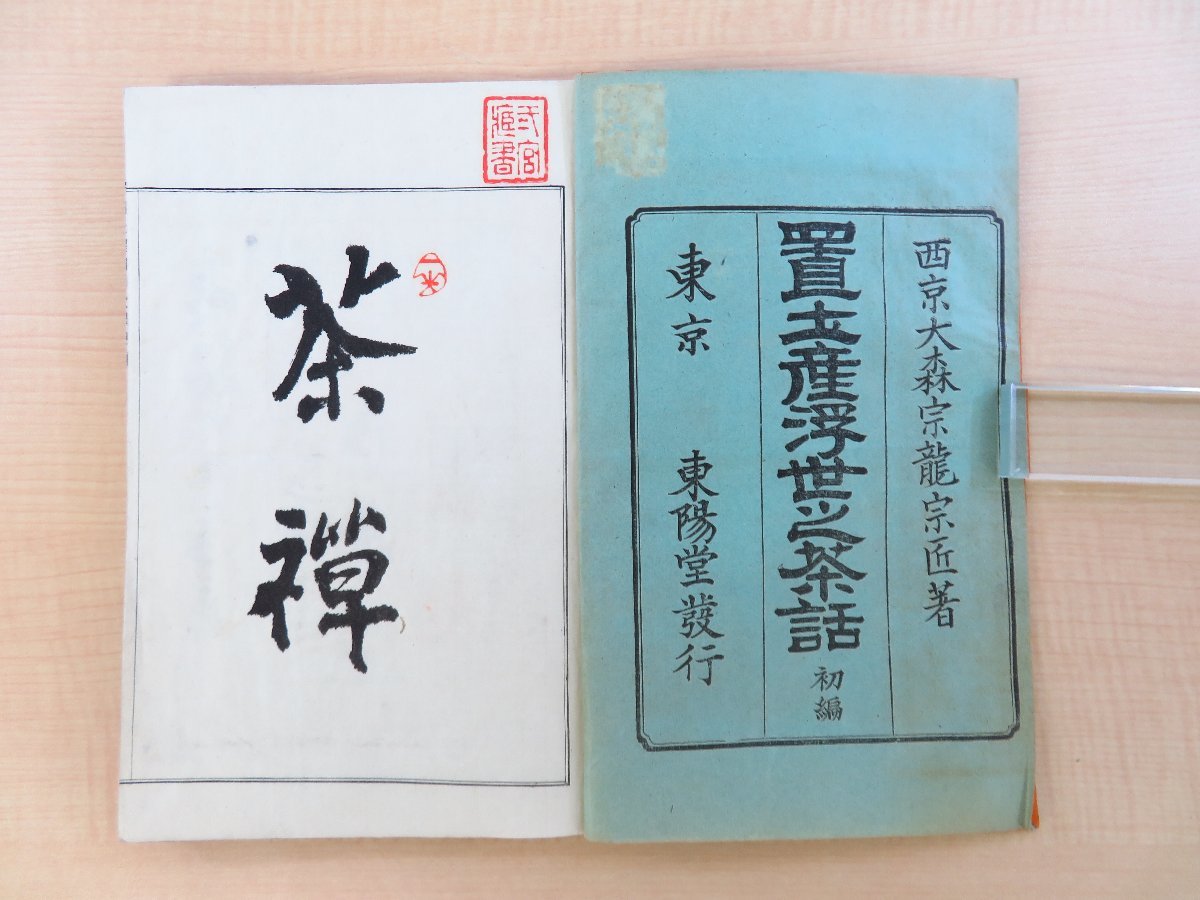 西京大森宗龍宗匠著
置土産浮世之茶話 初編
東京 東陽堂發行
弌宮
藏書
茶禪